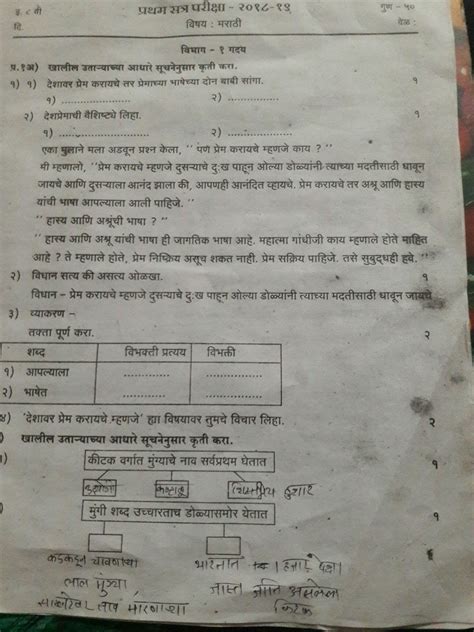 इ. ८ वी प्रथम सत्र परीक्षा - २०१८-१९ गुण - ५०
दि. विषय : मराठी वेळ :
विभाग - १ गद्य
प्र.१अ) खालील उताऱ्याच्या आधारे सूचनेनुसार कृती करा.
१) १) देशावर प्रेम करायचे तर प्रेमाच्या भाषेच्या दोन बाबी सांगा. १
१) .................... २) ....................
२) देशप्रेमाची वैशिष्ट्ये लिहा. १
१) .................... २) ....................
एका मुलाने मला अडवून प्रश्न केला, '' पण प्रेम करायचे म्हणजे काय ? ''
मी म्हणालो, ''प्रेम करायचे म्हणजे दुसऱ्याचे दुःख पाहून ओल्या डोळ्यांनी त्याच्या मदतीसाठी धावून
जायचे आणि दुसऱ्याला आनंद झाला की, आपणही आनंदित व्हायचे. प्रेम करायचे तर अश्रू आणि हास्य
यांची भाषा आपल्याला आली पाहिजे. ''
'' हास्य आणि अश्रूंची भाषा ? ''
'' हास्य आणि अश्रू यांची भाषा ही जागतिक भाषा आहे. महात्मा गांधीजी काय म्हणाले होते माहित
आहे ? ते म्हणाले होते, प्रेम निष्क्रिय असूच शकत नाही. प्रेम सक्रिय पाहिजे. तसे सुबुद्धही हवे. ''
२) विधान सत्य की असत्य ओळखा. १
विधान - प्रेम करायचे म्हणजे दुसऱ्याचे दुःख पाहून ओल्या डोळ्यांनी त्याच्या मदतीसाठी धावून जायचे
३) व्याकरण -
तक्ता पूर्ण करा. २
शब्द विभक्ती प्रत्यय विभक्ती
१) आपल्याला .................... ....................
२) भाषेत .................... ....................
४) 'देशावर प्रेम करायचे म्हणजे' ह्या विषयावर तुमचे विचार लिहा. २
) खालील उताऱ्याच्या आधारे सूचनेनुसार कृती करा.
१) कीटक वर्गात मुंग्याचे नाव सर्वप्रथम घेतात १
कष्टाळू हुशार
मुंगी शब्द उच्चारताच डोळ्यासमोर येतात १
कडकडून चावणाऱ्या भारतात
लाल मुंग्या जास्त जाति असलेला
किटक